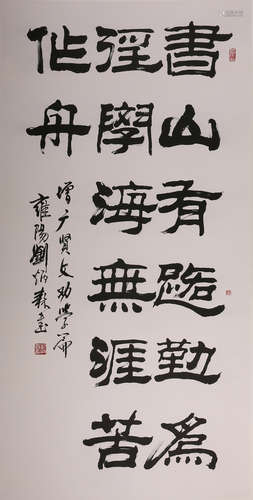 書山有路勤為
徑學海無涯苦
作舟
增广贤文劝學篇
雍陽劉炳森書